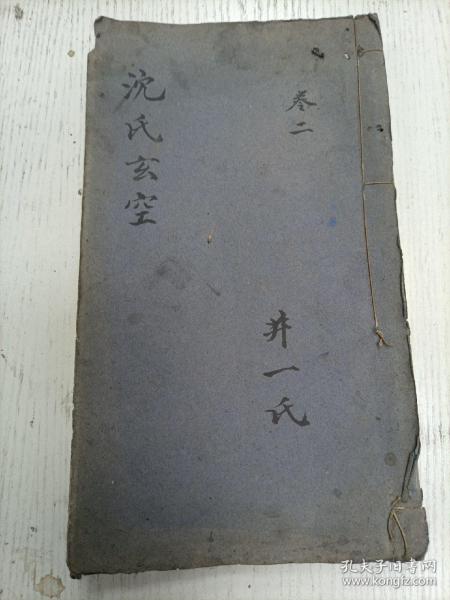 卷二
井一氏
沈氏玄空
孔夫子旧书网
www.kongfz.com